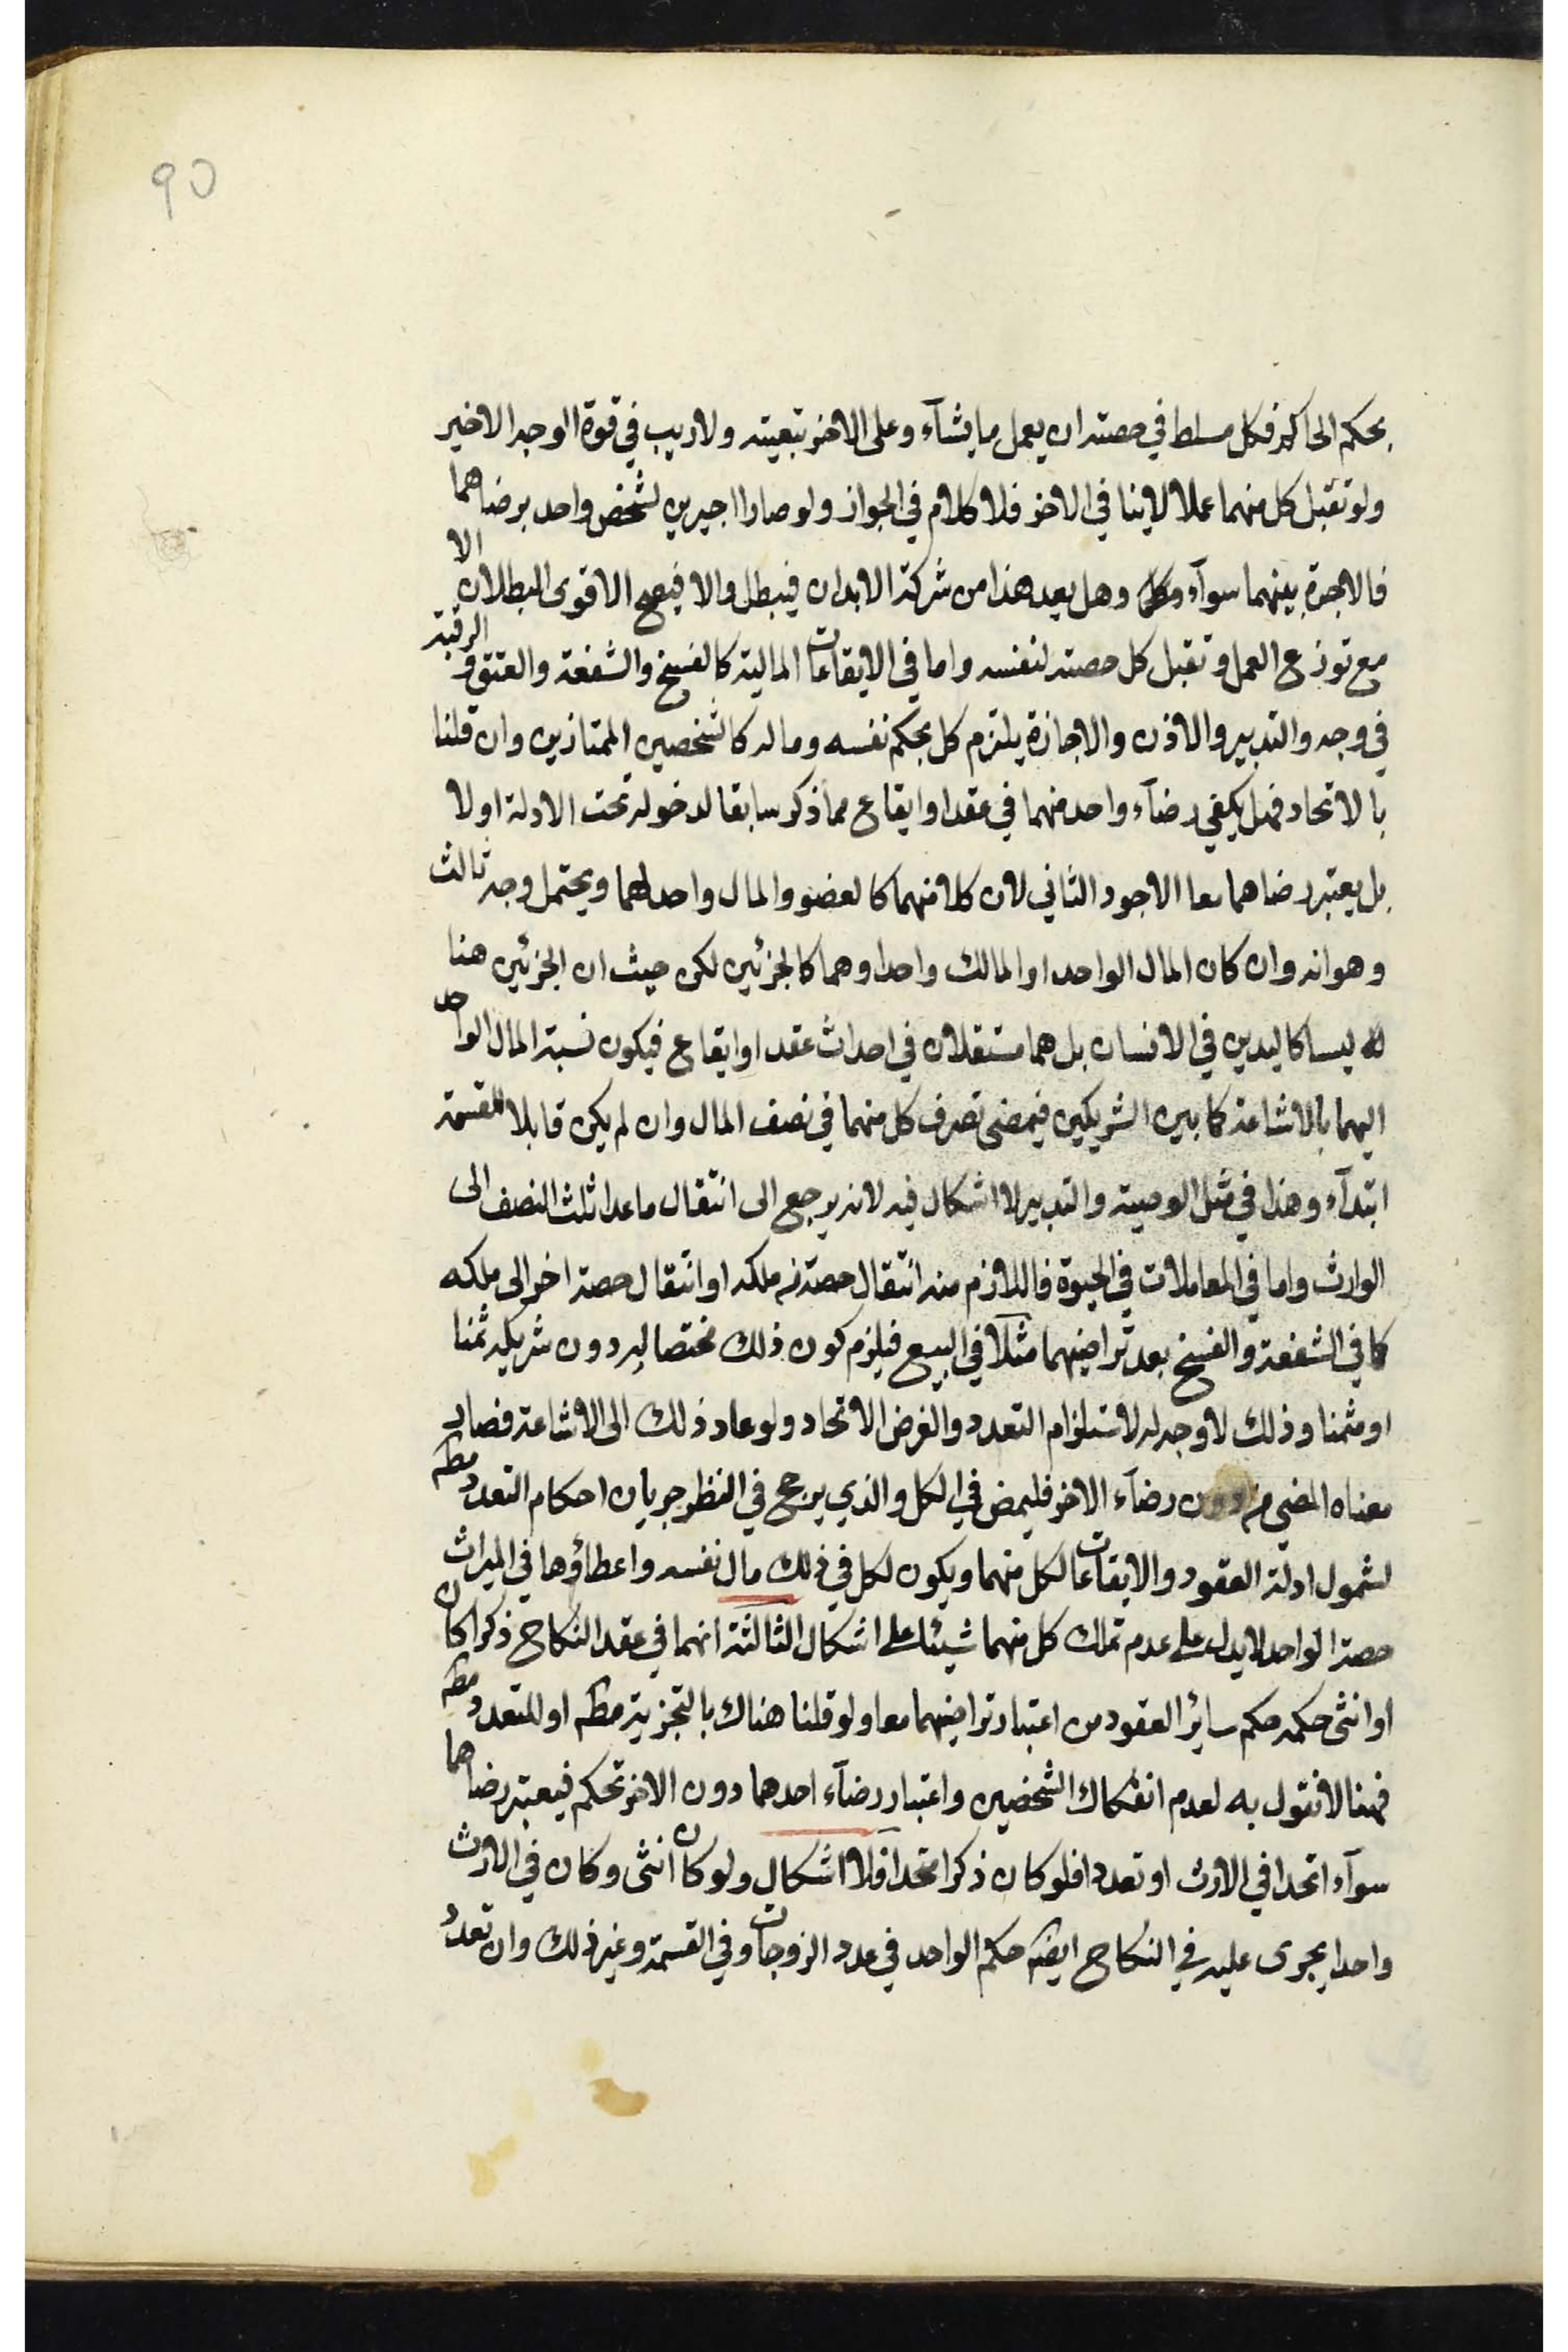 90
بحكم الحاكم فكل مسلط في حصته ان يعمل ما يشآء وعلى الاخر تبعيته ولا ريب في قوة الوجه الاخير
ولو تقبل كل منهما عملا لا ينافي الاخر فلا كلام في الجواز ولو صارا اجيرين لشخص واحد برضاهما
فالاجرة بينهما سوآء وهل يعد هذا من شركة الابدان فيبطل والا فيصح الاقوى البطلان الا
مع توزع العمل وتقبل كل حصته لنفسه واما في الايقاعات المالية كالفسخ والشفعة والعتق و الرقبة
في وجه والتدبير والاذن والاجازة يلتزم كل بحكم نفسه وماله كالشخصين الممتازين وان قلنا
بالاتحاد فهل يكفي رضآء واحد منهما في عقد او ايقاع مما ذكر سابقا لدخوله تحت الادلة اولا
بل يعتبر رضاهما معا الاجود الثاني لان كلا منهما كالعضو والمال واحد لهما ويحتمل وجه ثالث
وهو انه وان كان المال الواحد او المالك واحدا وهما كالجزئين لكن حيث ان الجزئين هنا
ليسا كاليدين في الانسان بل هما مستقلان في احداث عقد او ايقاع فيكون نسبة المال الواحد
اليهما بالاشاعة كما بين الشريكين فيمضى تصرف كل منهما في نصف المال وان لم يكن قابلا للقسمة
ابتدآء وهذا في مثل الوصية والتدبير لا اشكال فيه لانه يرجع الى انتقال ما عدا ثلث النصف الى
الوارث واما في المعاملات في الحيوة فاللازم منه انتقال حصة من ملكه او انتقال حصة اخر الى ملكه
كما في الشفعة والفسخ بعد تراضيهما مثلا في البيع فيلزم كون ذلك مختصا به دون شريكه ثمنا
او مثمنا وذلك لا وجه له لاستلزام التعدد والفرض الاتحاد ولو عاد ذلك الى الاشاعة فصار
معناه المضي من دون رضآء الاخر فليمض في الكل والذي يرجح في النظر جريان احكام التعدد مطم
لشمول ادلة العقود والايقاعات لكل منهما ويكون لكل في ذلك مال نفسه واعطاؤها في الميراث
حصة الواحد لا يدل على عدم تملك كل منهما شيئا على اشكال الثالثة انهما في عقد النكاح ذكرا كان
او انثى حكمه حكم ساير العقود من اعتبار تراضيهما معا ولو قلنا هناك بالتجزية مطم او للتعدد مطم
فهنا لا نقول به لعدم انفكاك الشخصين واعتبار رضآء احدهما دون الاخر تحكم فيعتبر رضاهما
سوآء اتحدا في الارث او تعددا فلو كان ذكرا متحدا فلا اشكال ولو كان انثى وكان في الارث
واحدا يجرى عليه في النكاح ايضم حكم الواحد في عدد الزوجات وفي القسمة وغير ذلك وان تعدد